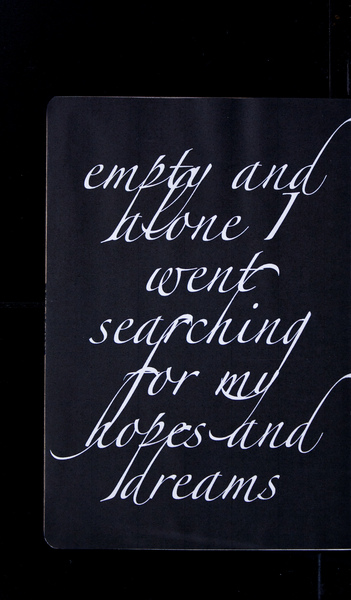 empty and
alone I
went
searching
for my
hopes and
dreams